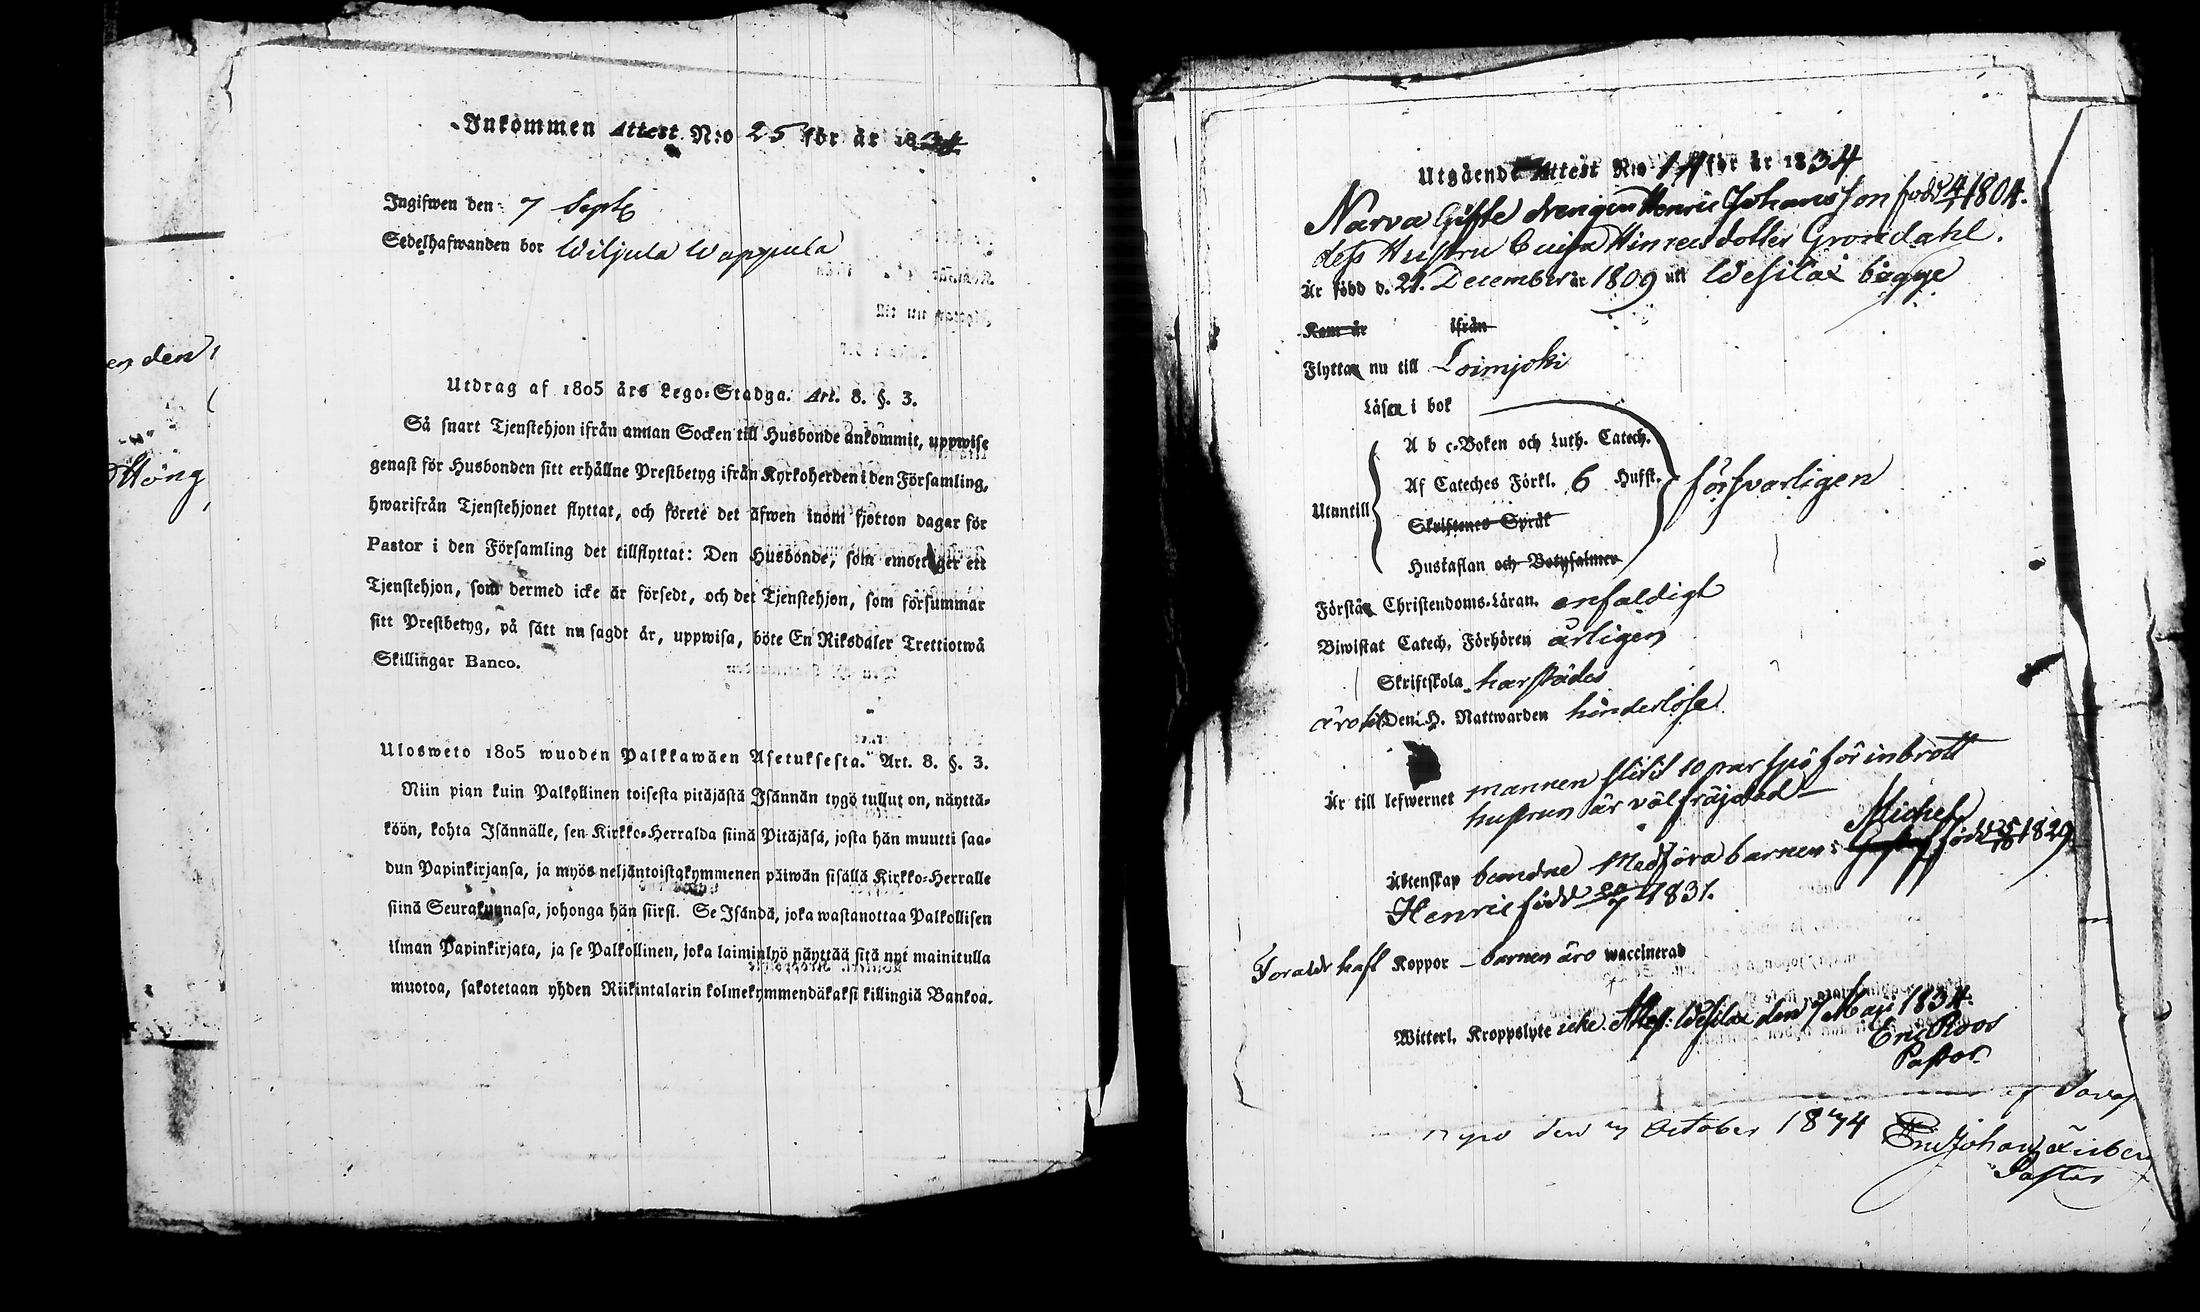 en den
Höng
Inkommen Attest N:o 25 för år 1834
Ingifwen den 7 Sept:
Sedelhafwanden bor Wiljula Wappula
Utdrag af 1805 års Lego-Stadga. Art. 8. §. 3.
Så snart Tjenstehjon ifrån annan Socken till Husbonde ankommit, uppwise
genast för Husbonden sitt erhållne Prestbetyg ifrån Kyrkoherden i den Församling,
hwarifrån Tjenstehjonet flyttat, och förete det äfwen inom fjorton dagar för
Pastor i den Församling det tillflyttat: Den Husbonde, som emottager ett
Tjenstehjon, som dermed icke är försedt, och det Tjenstehjon, som försummar
sitt Prestbetyg, på sätt nu sagdt är, uppwisa, böte En Riksdaler Trettiotwå
Skillingar Banco.
Ulosweto 1805 wuoden Palkkawäen Asetuksesta. Art. 8. §. 3.
Niin pian kuin Palkollinen toisesta pitäjästä Isännän tygö tullut on, näyttä-
köön, kohta Isännälle, sen Kirkko-Herralda siinä Pitäjäsä, josta hän muutti saa-
dun Papinkirjansa, ja myös neljäntoistakymmenen päiwän sisällä Kirkko-Herralle
siinä Seurakunnasa, johonga hän siirsi. Se Isändä, joka wastanottaa Palkollisen
ilman Papinkirjata, ja se Palkollinen, joka laiminlyö näyttää sitä nyt mainitulla
muotoa, sakotetaan yhden Riikintalarin kolmekymmendäkaksi killingiä Bankoa.
Utgående Attest N:o 11 för år 1834
Narva Gifte drengen Henric Johansson född 4/7 1804.
dess Hustru Cuisa Hinrecsdotter Grondahl.
Är född d. 21. December år 1809 uti Wesilax bägge
Kom år ifrån
Flytta nu till Loimjoki
Läsen i bok
A b c-Boken och Luth. Catech.
Af Cateches Förkl. 6 Hufst. försvarligen
Utantill
Skriftenes Språk
Hustaflan och Botpsalmer
Förstå Christendoms-Läran. enfaldigt
Biwistat Catech. Förhören årligen
Skriftskola härstädes
äro till Den H. Nattwarden hinderlöse
Är till lefwernet mannen slitit 10 par spö för inbrott
hustrun är väl fräjdad
Michel
Äktenskap bundne Medföra barnen: född 25/10 1829
Henric född 20/7 1831.
Foraldr: haft Koppor – barnen äro waccinerad
Witterl. Kroppslyte icke. Attest: Wesilax den 7 Maji 1834.
Eric Roos
Pastor.
af
den 7 October 1834 Eric Johan
Pastor